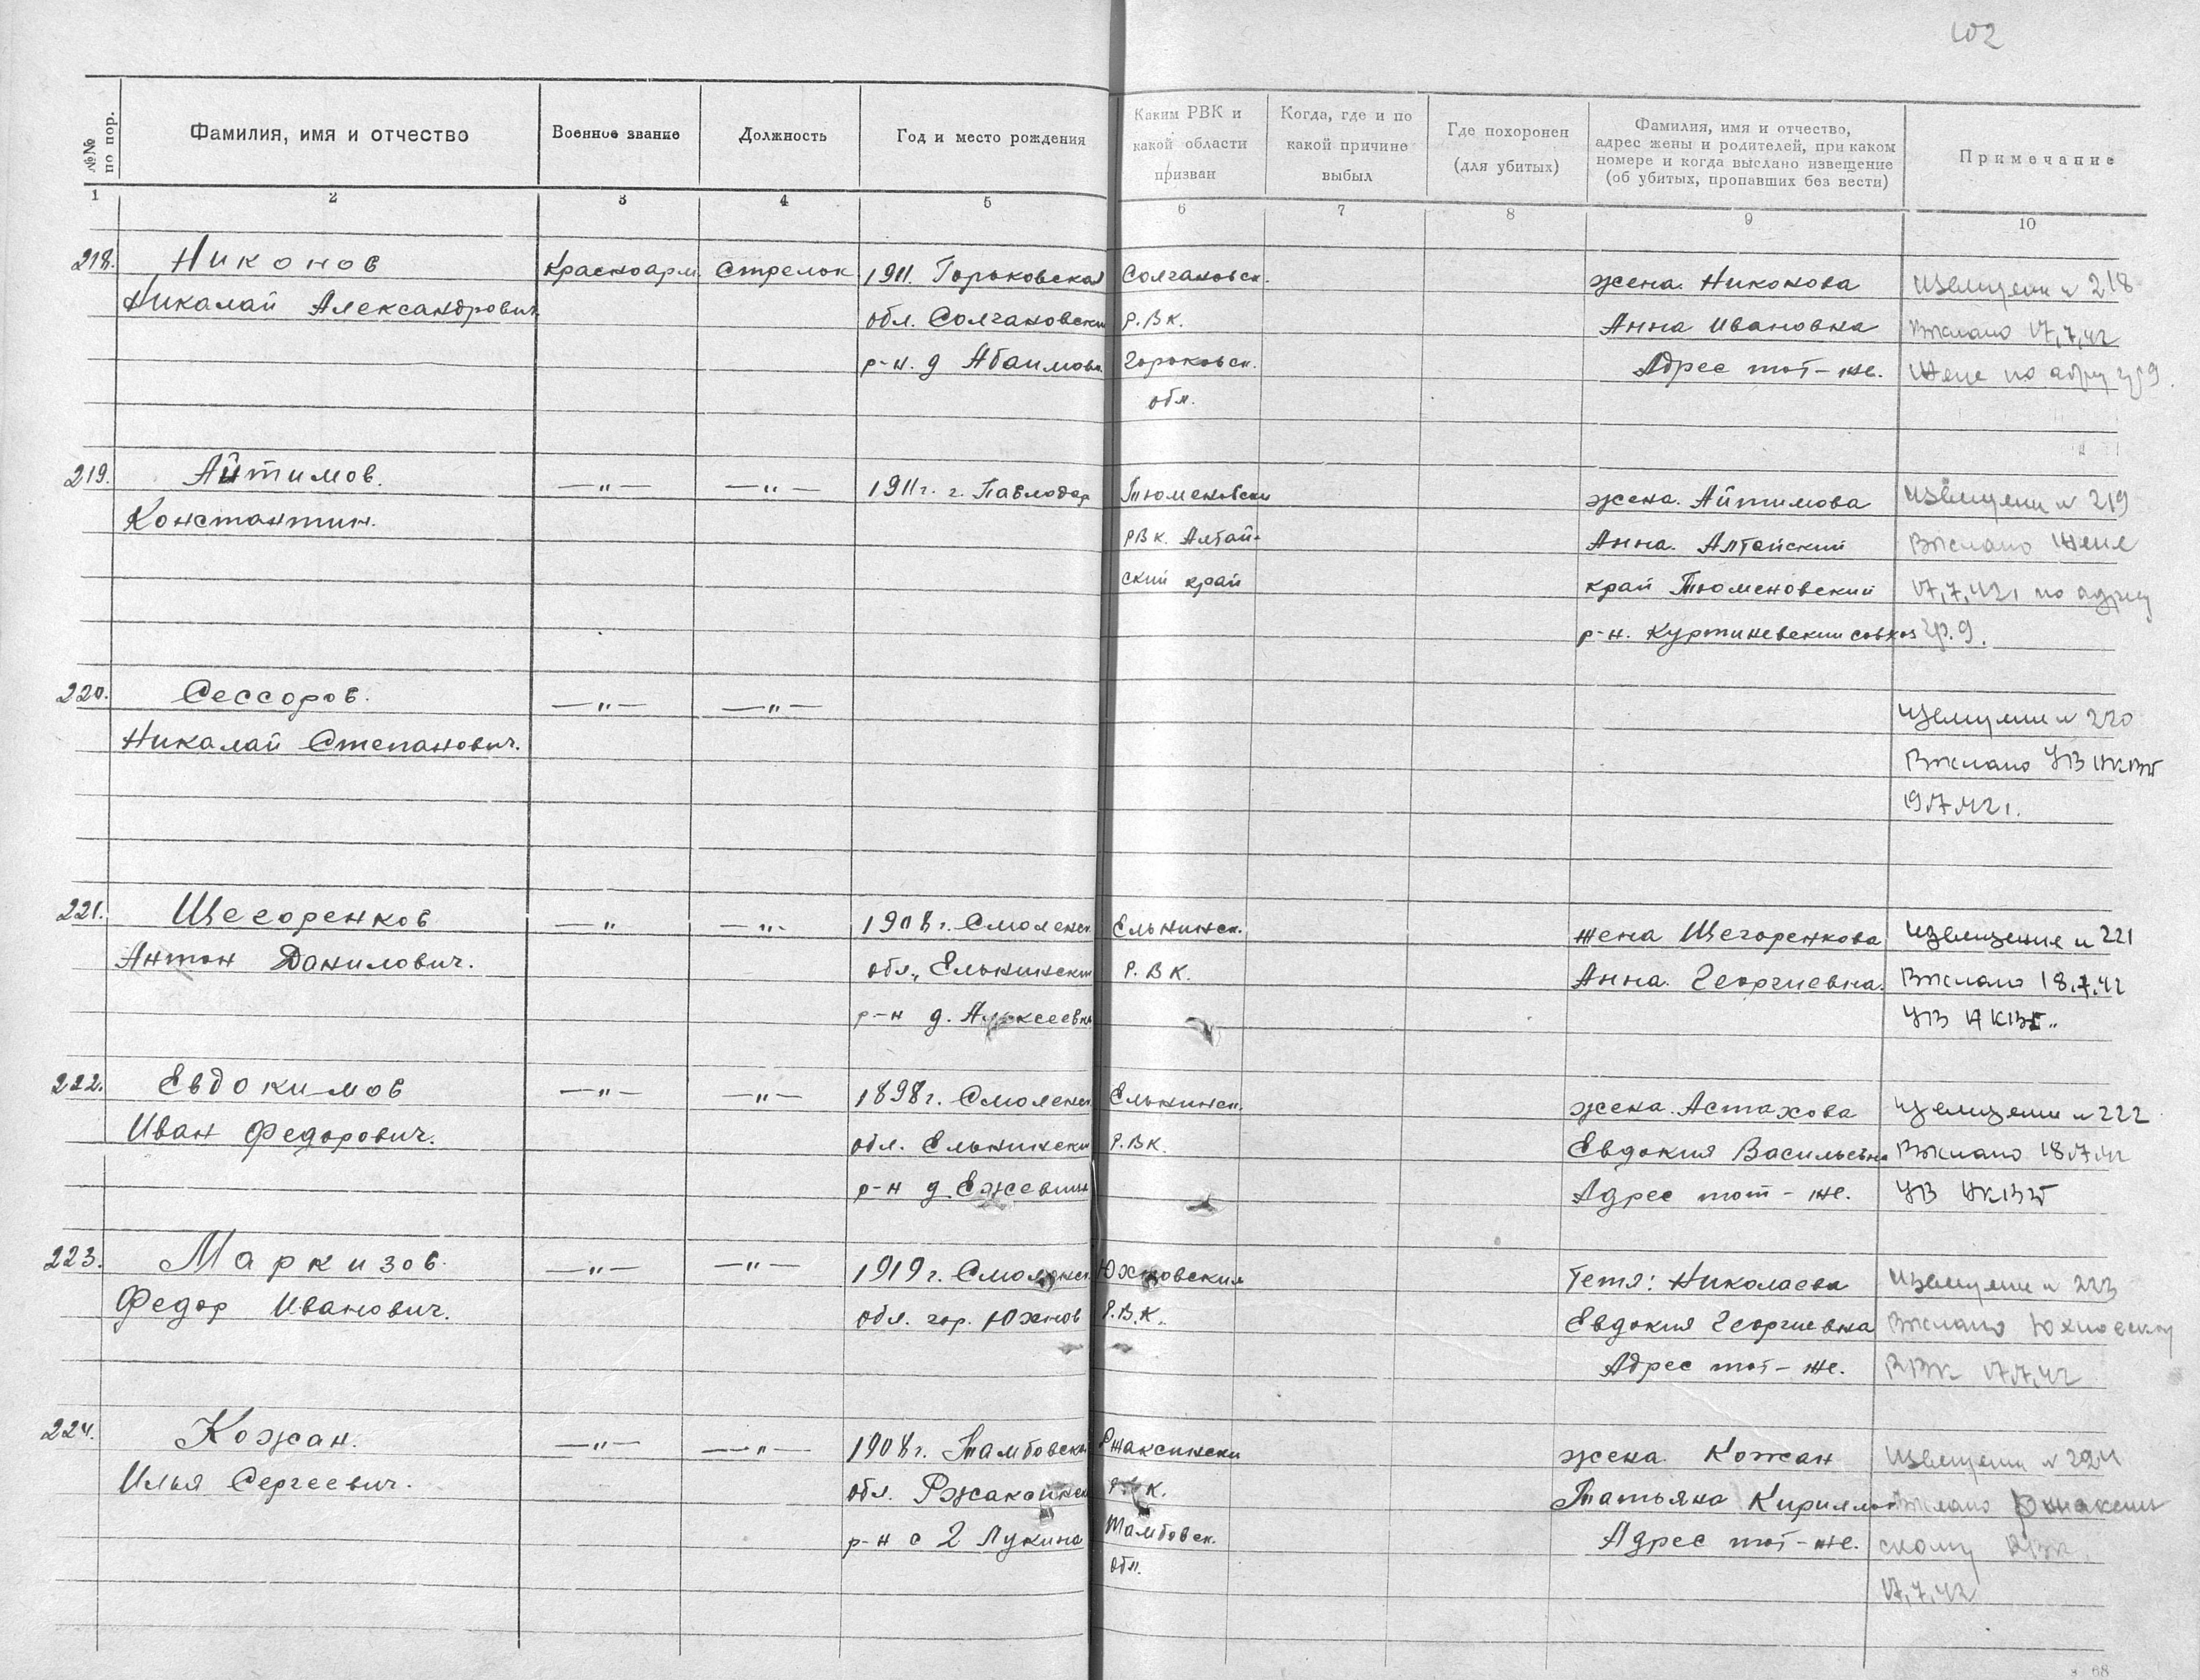 102
№№ по пор.
Фамилия, имя и отчество
Военное звание
Должность
Год и место рождения
Каким РВК и какой области призван
Когда, где и по какой причине выбыл
Где похоронен (для убитых)
Фамилия, имя и отчество, адрес жены и родителей, при каком номере и когда выслано извещение (об убитых, пропавших без вести)
Примечание
1 2 3 4 5 6 7 8 9 10
218. Никонов Красноарм. Стрелок 1911. Горьковская Солгановск. жена. Никонова Извещение № 218
Николай Александрович обл. Солгановский Р.В.К. Анна Ивановна Выслано 17.7.42
р-н. д Абаимово Горьковск. Адрес тот-же. Жене по адресу гр 9.
обл.
219. Айтимов. —"— —"— 1911г. г. Павлодар Тюменовский жена. Айтимова Извещение № 219
Константин. РВК. Алтай- Анна. Алтайский Выслано жене
ский край край Тюменовский 17.7.42г по адресу
р-н. Куртиневский совхоз гр. 9.
220. Сессоров. —"— —"— Извещение № 220
Николай Степанович. Выслано УВ НКВД
19.7.42г.
221. Щегоренков —"— —"— 1908г. Смоленск. Ельнинск. жена Щегоренкова Извещение № 221
Антон Данилович. обл., Ельнинский Р.ВК. Анна. Георгиевна. Выслано 18.7.42
р-н д. Алексеевка УВ НКВД
222. Евдокимов —"— —"— 1898г. Смоленск. Ельнинск. жена. Астахова Извещение № 222
Иван Федорович. обл. Ельнинский Р.ВК. Евдокия Васильевна Выслано 18.7.42
р-н д. Адрес тот-же. УВ НКВД
223. Маркизов. —"— —"— 1919г. Смоленск. Юхновский Тетя: Николаева Извещение № 223
Федор Иванович. обл. гор. Юхнов Р.В.К. Евдокия Георгиевна Выслано Юхновскому
Адрес тот-же. РВК 17.7.42
224. Кожан. —"— —"— 1908г. Тамбовская Ржаксинский жена. Кожан Извещение № 224
Илья Сергеевич. обл. Ржаксинск Р.В.К. Татьяна Кирилло Выслано Ржаксин
р-н с 2 Лукина Тамбовск. Адрес тот-же. скому РВК.
обл. 17.7.42
68